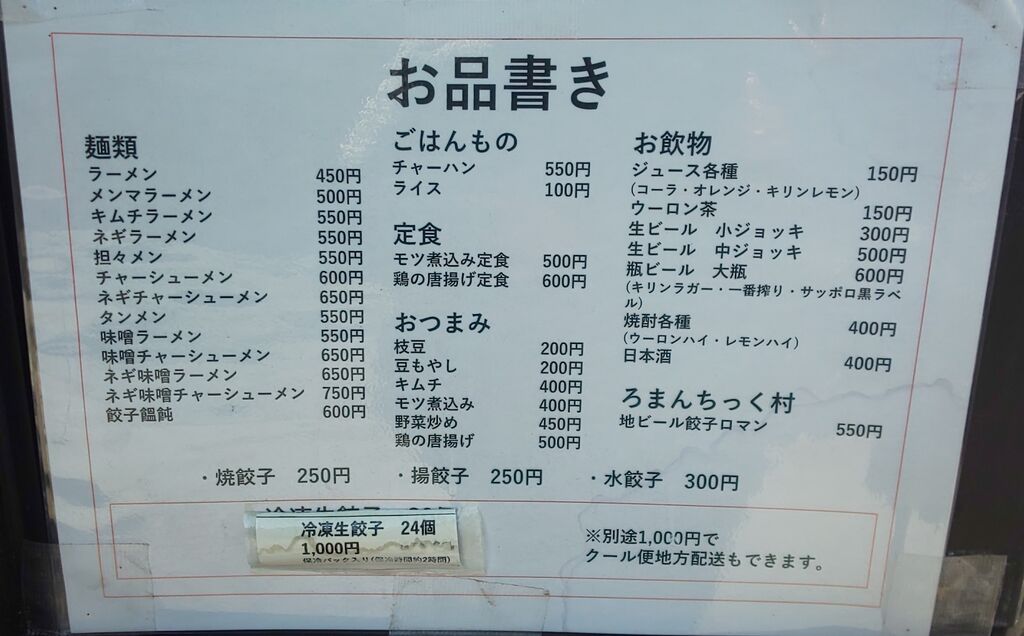 お品書き
麺類
ラーメン 450円
メンマラーメン 500円
キムチラーメン 550円
ネギラーメン 550円
担々メン 550円
チャーシューメン 600円
ネギチャーシューメン 650円
タンメン 550円
味噌ラーメン 550円
味噌チャーシューメン 650円
ネギ味噌ラーメン 650円
ネギ味噌チャーシューメン 750円
餃子饂飩 600円
ごはんもの
チャーハン 550円
ライス 100円
定食
モツ煮込み定食 500円
鶏の唐揚げ定食 600円
おつまみ
枝豆 200円
豆もやし 200円
キムチ 400円
モツ煮込み 400円
野菜炒め 450円
鶏の唐揚げ 500円
お飲物
ジュース各種 150円
(コーラ・オレンジ・キリンレモン)
ウーロン茶 150円
生ビール 小ジョッキ 300円
生ビール 中ジョッキ 500円
瓶ビール 大瓶 600円
(キリンラガー・一番搾り・サッポロ黒ラベ
ル)
焼酎各種 400円
(ウーロンハイ・レモンハイ)
日本酒 400円
ろまんちっく村
地ビール餃子ロマン 550円
・焼餃子 250円 ・揚餃子 250円 ・水餃子 300円
冷凍生餃子 24個
1,000円
保冷パック入り(保冷時間約2時間)
※別途1,000円で
クール便地方配送もできます。